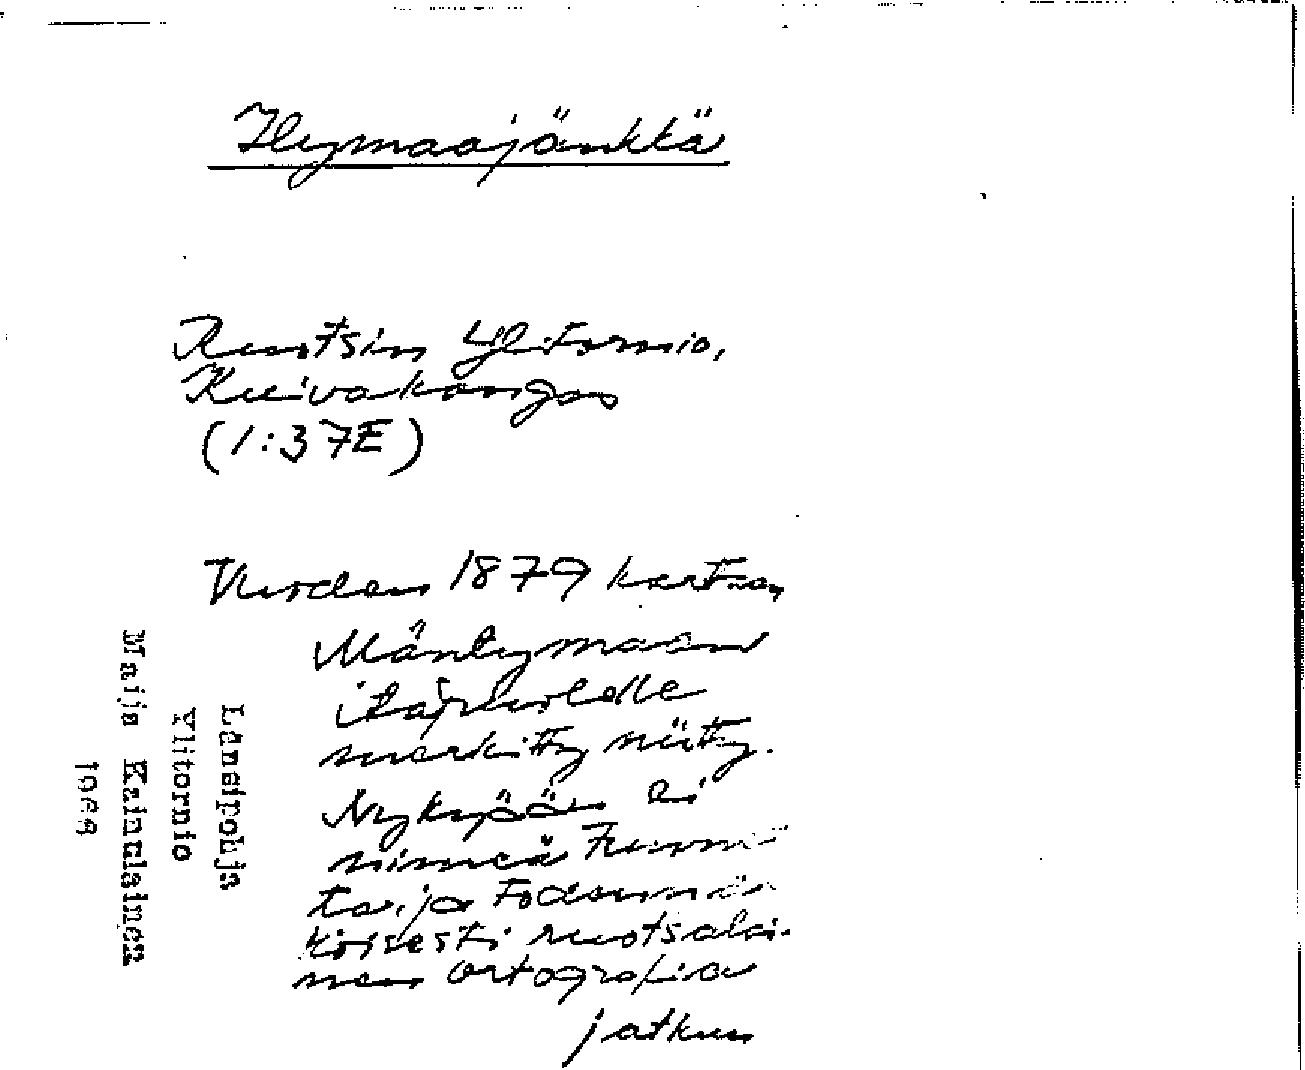 Ilymaajänkkä
Ruotsin Ylitornio,
Kuivakangas
(1:37E)
Vuoden 1879 kartan
Mäntymaan
itäpuolelle
merkitty niitty.
Nykyään ei
nimeä tunne-
ta, ja todennä-
köisesti ruotsalai-
nen ortografia
jatkuu
Länsipohja
Ylitornio
Maija Kainulainen
1968